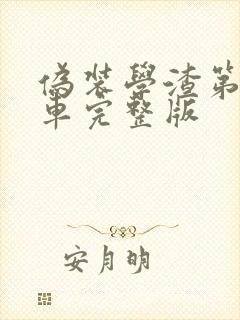 偽装學渣第
車完整版
安月明